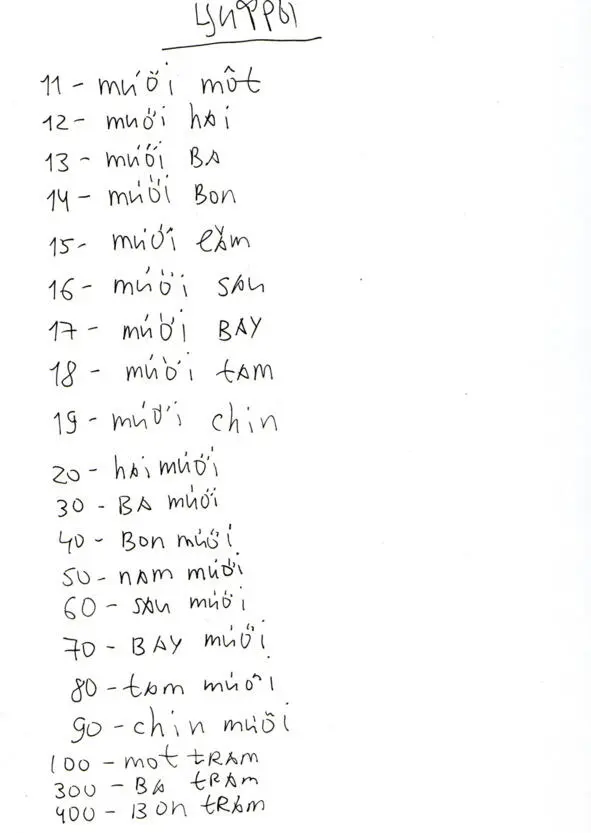 Цифры
11 - mười một
12 - mười hai
13 - mười BA
14 - mười Bon
15 - mười lăm
16 - mười sau
17 - mười BAY
18 - mười tam
19 - mười chin
20 - hai mười
30 - BA mười
40 - Bon mười
50 - nam mười
60 - sau mười
70 - BAY mười
80 - tam mười
90 - chin mười
100 - mot tRAm
300 - BA tRAm
400 - Bon tRAm